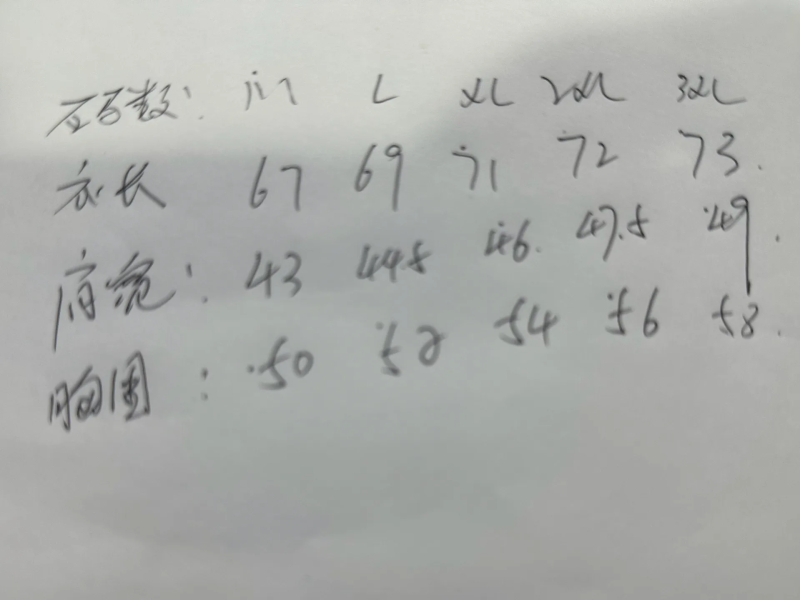 码数: M L XL 2XL 3XL
衣长 67 69 71 72 73.
肩宽: 43 44.5 46. 47.5 49.
胸围: 50 52 54 56 58.